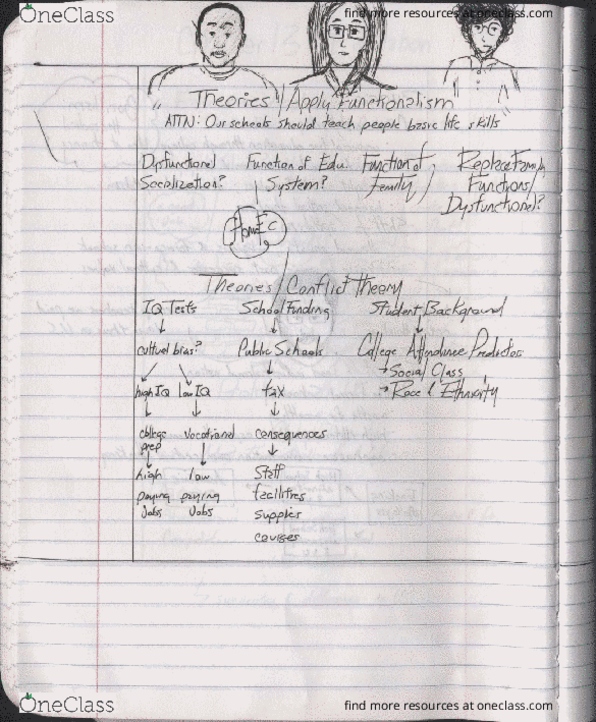 OneClass
find more resources at oneclass.com
Theories/Apply Functionalism
ATTN: Our schools should teach people basic life skills
Dysfunctional Socialization?
Function of Edu. System?
Home Ec
Function of family/
Replace Family Functions/ Dysfunctional?
Theories/Conflict Theory
IQ Tests
cultural bias?
high IQ low IQ
college prep vocational
high paying Jobs
low paying Jobs
School Funding
Public Schools
tax
consequences
Staff
facilities
supplies
courses
Student Background
College Attendance Predictor
→ Social Class
→ Race & Ethnicity
OneClass
find more resources at oneclass.com